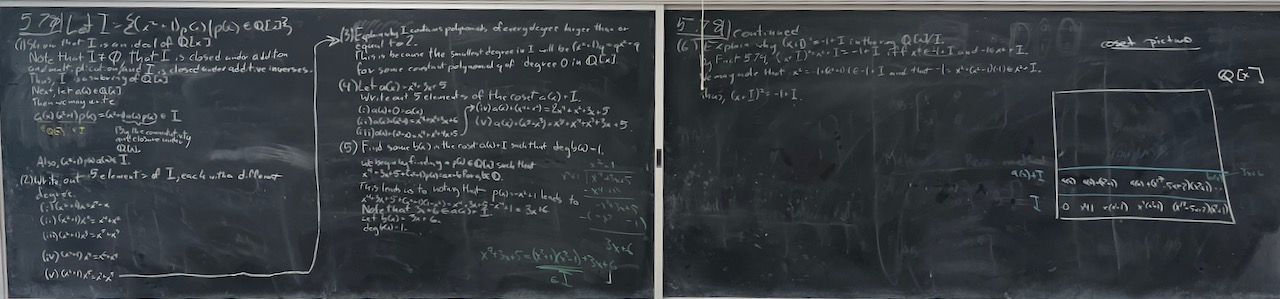 5.7.9) Let I = {(x²+1)p(x) | p(x) ∈ Q[x]}
(1) Show that I is an ideal of Q[x].
Note that I ≠ ∅, that I is closed under addition
and multiplication and I is closed under additive inverses.
Thus, I is a subring of Q[x].
Next, let a(x) ∈ Q[x].
Then we may write
a(x)(x²+1)p(x) = (x²+1)a(x)p(x) ∈ I
∈ Q[x] ∈ I
By the commutativity
and closure under
Q[x].
Also, (x²+1)p(x)a(x) ∈ I.
(2) Write out 5 elements of I, each with a different
degree.
(i) (x²+1)x = x³+x
(ii) (x²+1)x² = x⁴+x²
(iii) (x²+1)x³ = x⁵+x³
(iv) (x²+1)
(v) (x²+1)x⁵ = x⁷+x⁵
(3) Explain why I contains polynomials of every degree larger than or
equal to 2.
This is because the smallest degree in I will be (x²+1)q = qx²+q
for some constant polynomial q of degree 0 in Q[x].
(4) Let a(x) = x⁴+3x+5
Write out 5 elements of the coset a(x)+I.
(i) a(x)+0 = a(x)
(ii) a(x)+(x²+1) = x⁴+x²+3x+6
(iii) a(x)+(x³+x) = x⁴+x³+4x+5
(iv) a(x)+(x⁴+x²) = 2x⁴+x²+3x+5
(v) a(x)+(x⁵+x³) = x⁵+x⁴+x³+3x+5
(5) Find some b(x) in the coset a(x)+I such that deg b(x) = 1.
We begin by finding a p(x) ∈ Q[x] such that
This leads us to noting that p(x) = -x²+1 leads to
Note that 3x+6 ∈ a(x)+I.
Let b(x) = 3x+6.
deg b(x) = 1.
3x+6
x⁴+3x+5 = (x²+1)(x²-1)+3x+6
∈ I
5.7.9) continued
(6) Explain why (x+I)² = -1+I in the ring Q[x]/I.
By Fact 5.7.4, (x+I)² = x²+I = -1+I iff x² ∈ -1+I and -1 ∈ x²+I.
We may note that x² = -1+(x²+1) ∈ -1+I and that -1 = x²+(x²+1)(-1) ∈ x²+I.
Thus, (x+I)² = -1+I.
coset picture
Q[x]
a(x)+I
3x+6
I
0 x²+1 x(x²+1) x²(x²+1)